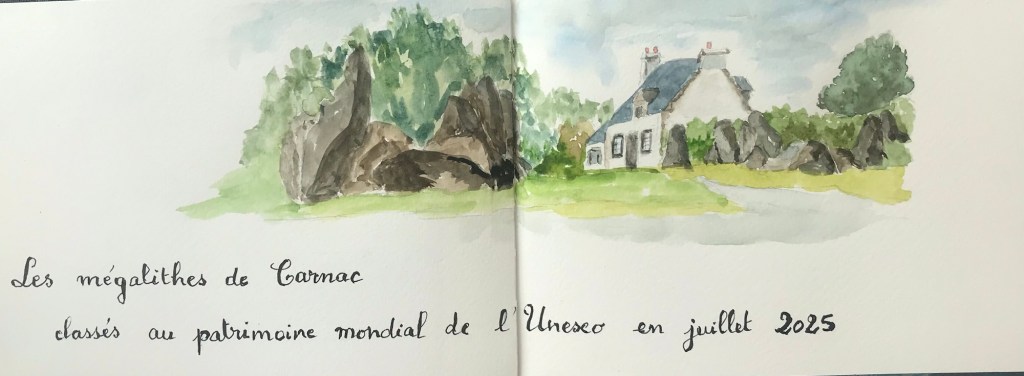 Les mégalithes de Carnac
classés au patrimoine mondial de l'Unesco en juillet 2025